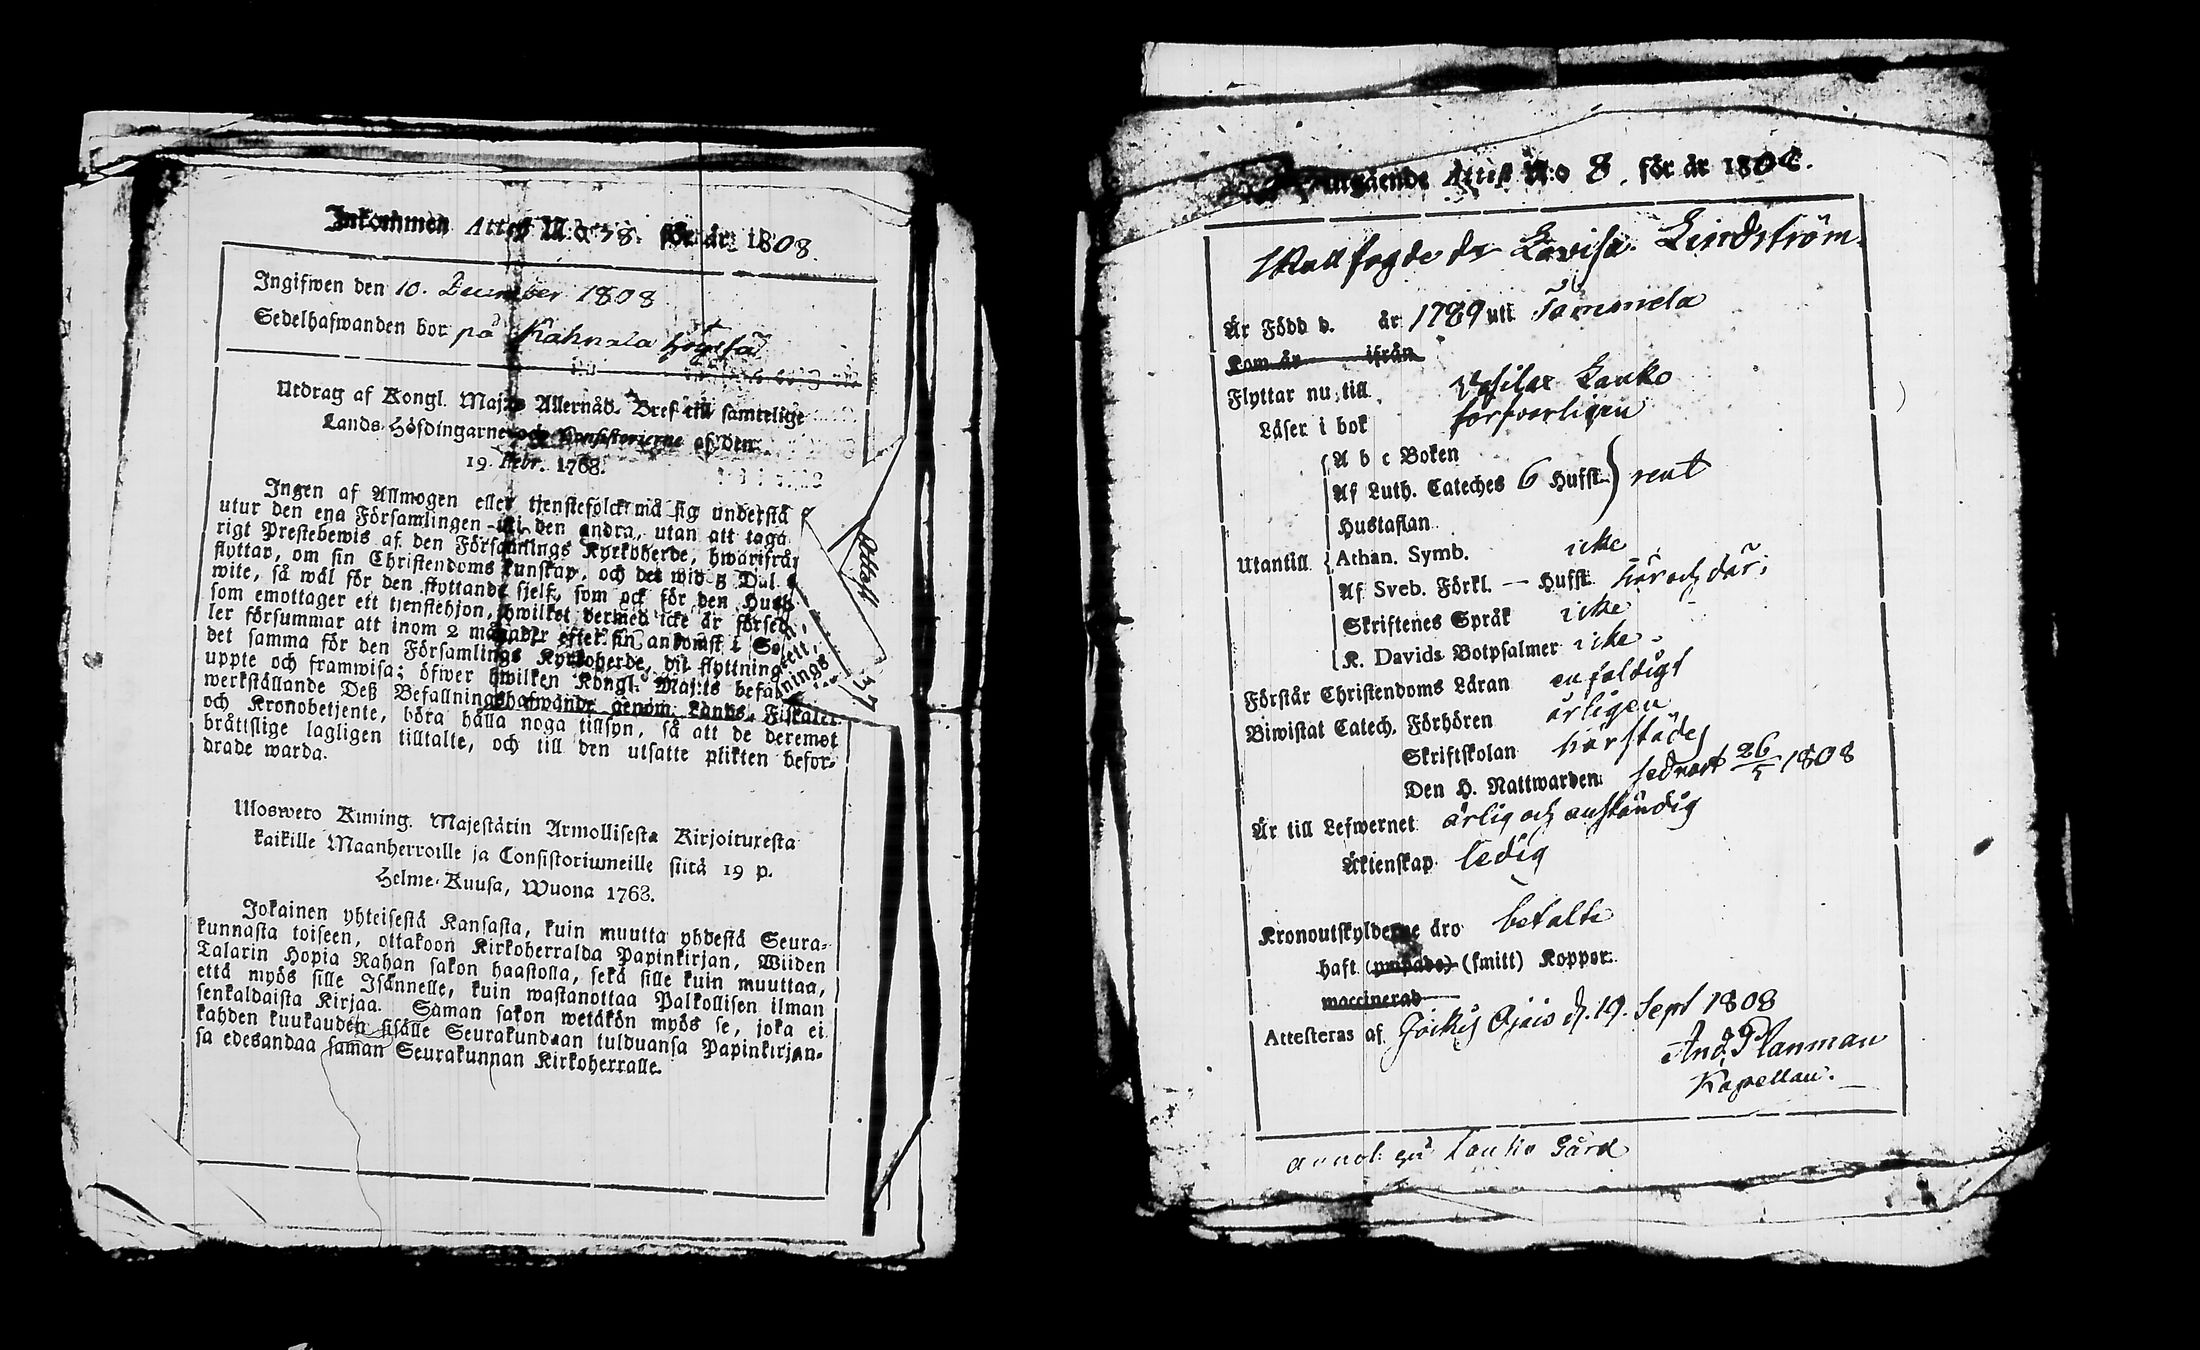 Inkommen Attest N:o 78. för år 1808.
Ingifwen den 10. December 1808
Sedelhafwanden bor på Kahnala
Utdrag af Kongl. Maj:ts Allernåd. Bref till samtelige
Lands-Höfdingarne och Konsistorierne af den
19. Febr. 1768.
Ingen af Allmogen eller tjenstefolck må sig understå
utur den ena Församlingen uti den andra, utan att taga
rigt Prestebewis af den Församlings Kyrkoherde, hwarifrån
flyttar, om sin Christendoms kunskap, och det wid 5 Dal.
wite, så wäl för den flyttande sjelf, som ock för den Husb
som emottager ett tjenstehjon, hwilket dermed icke är försed
ler försummar att inom 2 månader efter sin ankomst i So
det samma för den Församlings Kyrkoherde, dit flyttning
uppte och framwisa; öfwer hwilken Kongl. Maj:ts befallnings
werkställande Deß Befallningshafwande genom Lands-Fiskaler
och Kronobetjente, böra hålla noga tillsyn, så att de deremot
bråttslige lagligen tilltalte, och till den utsatte plikten befor-
drade warda.
Attest
Uloswero Kuning. Majestätin Armollisesta Kirjoituxesta
kaikille Maanherroille ja Consistoriumeille siitä 19 p.
Helme-Kuusa, Wuona 1768.
Jokainen yhteisestä Kansasta, kuin muutta yhdestä Seura-
kunnasta toiseen, ottakoon Kirkoherralda Papinkirjan, Wiiden
Talarin Hopia Rahan sakon haastolla, sekä sille kuin muuttaa,
että myös sille Isännelle, kuin wastanottaa Palkollisen ilman
senkaldaista Kirjaa. Saman sakon wetäkön myös se, joka ei
kahden kuukauden sisälle Seurakundaan tulduansa Papinkirjan-
sa edesandaa saman Seurakunnan Kirkoherralle.
utgående Attest N:o 8. för år 1808.
Wallfogde dr Lovisa Lindström.
Är Född d. år 1789 uti Tammela
Kom år ifrån
Flyttar nu till Vesilax Lauko
Läser i bok forsvarligen
A b c Boken
Af Luth. Cateches 6 Hufst. rent
Hustaflan
Utantill Athan. Symb. icke
Af Sveb. Förkl. — Hufst. här och där;
Skriftenes Språk icke
K. Davids Botpsalmer icke.
Förstår Christendoms Läran enfaldigt
Biwistat Catech. Förhören årligen
Skriftskolan härstädes
Den H. Nattwarden sednast 26/5 1808
Är till Lefwernet ärlig och anständig
Äktenskap ledig
Kronoutskylderne äro betalte
haft (ympade) (smitt) Koppor.
waccinerad
Attesteras af Jockis Ojais d. 19. Sept 1808
And. Planman
Kapellan.
Lauko Gård